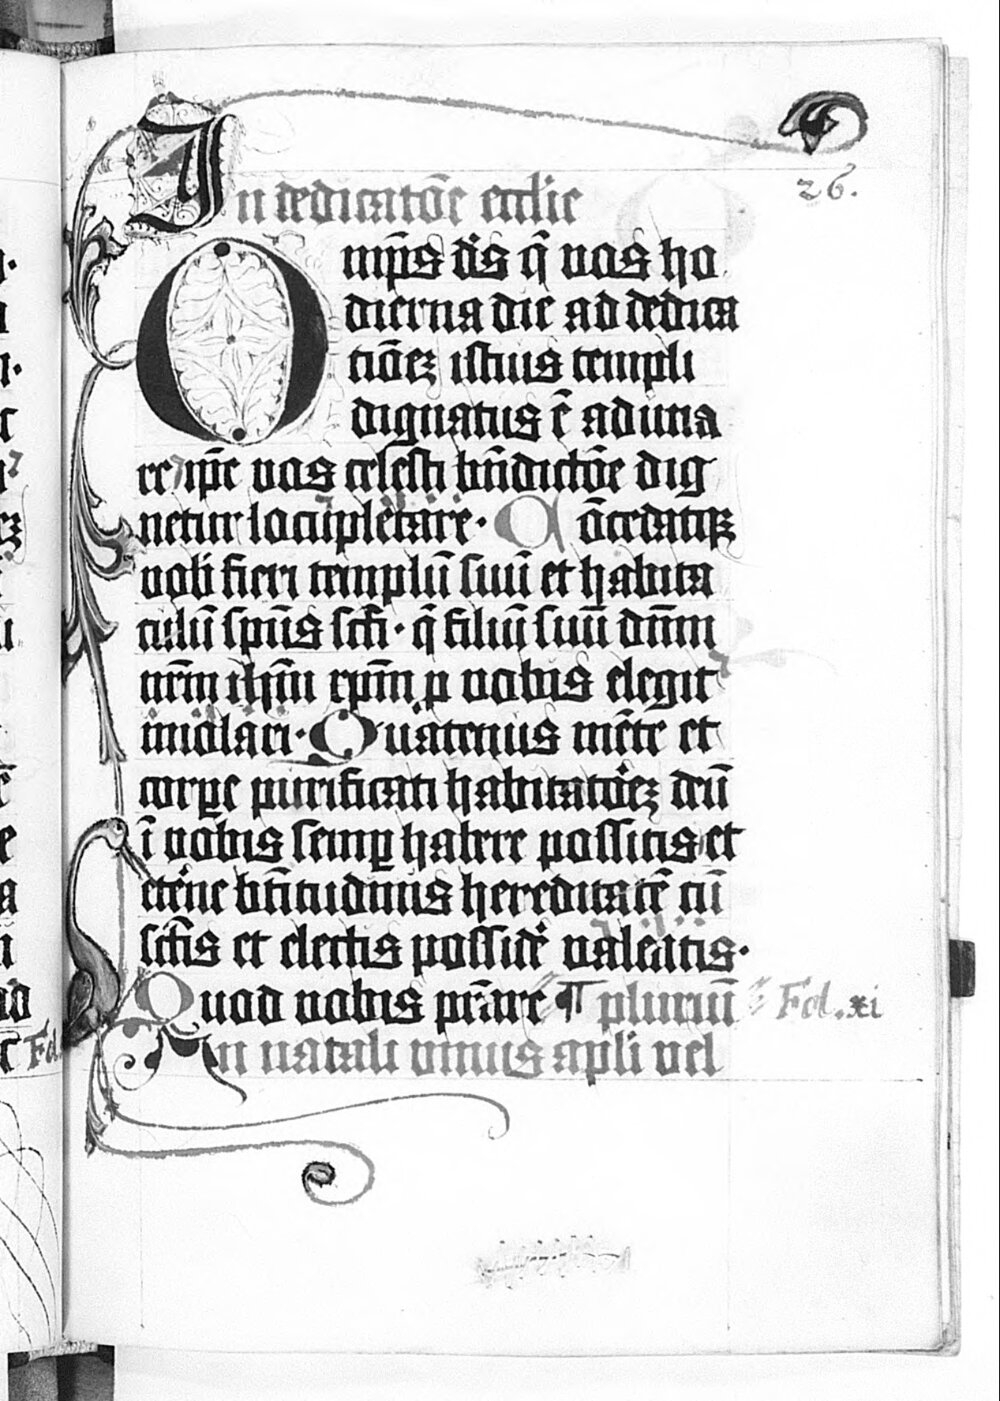 26.
In dedicatōe eccl'ie
Omp̄s ds̄ q̄ vos ho
dierna die ad dedica
tiōeꝫ istius templi
dignatus ē aduna
re ip̄e vos celesti bn̄dictōe dig
netur locupletare· Cōcedatqꝫ
vob̄ fieri templū suū et habita
culū spūs scī· q̄ filiū suū dn̄m
nr̄m ihm̄ xpm̄ p vobis elegit
imolari· Quatenus mēte et
corꝑe purificati habitatōeꝫ deū
ī vobis semꝑ habere possitis et
et'ne bt̄itudinis hereditatē cū
scīs et electis possid'e valeatis·
Quod vobis pr̄are ¶ pluriū Fol. xi
In natali vnius apl'i vel